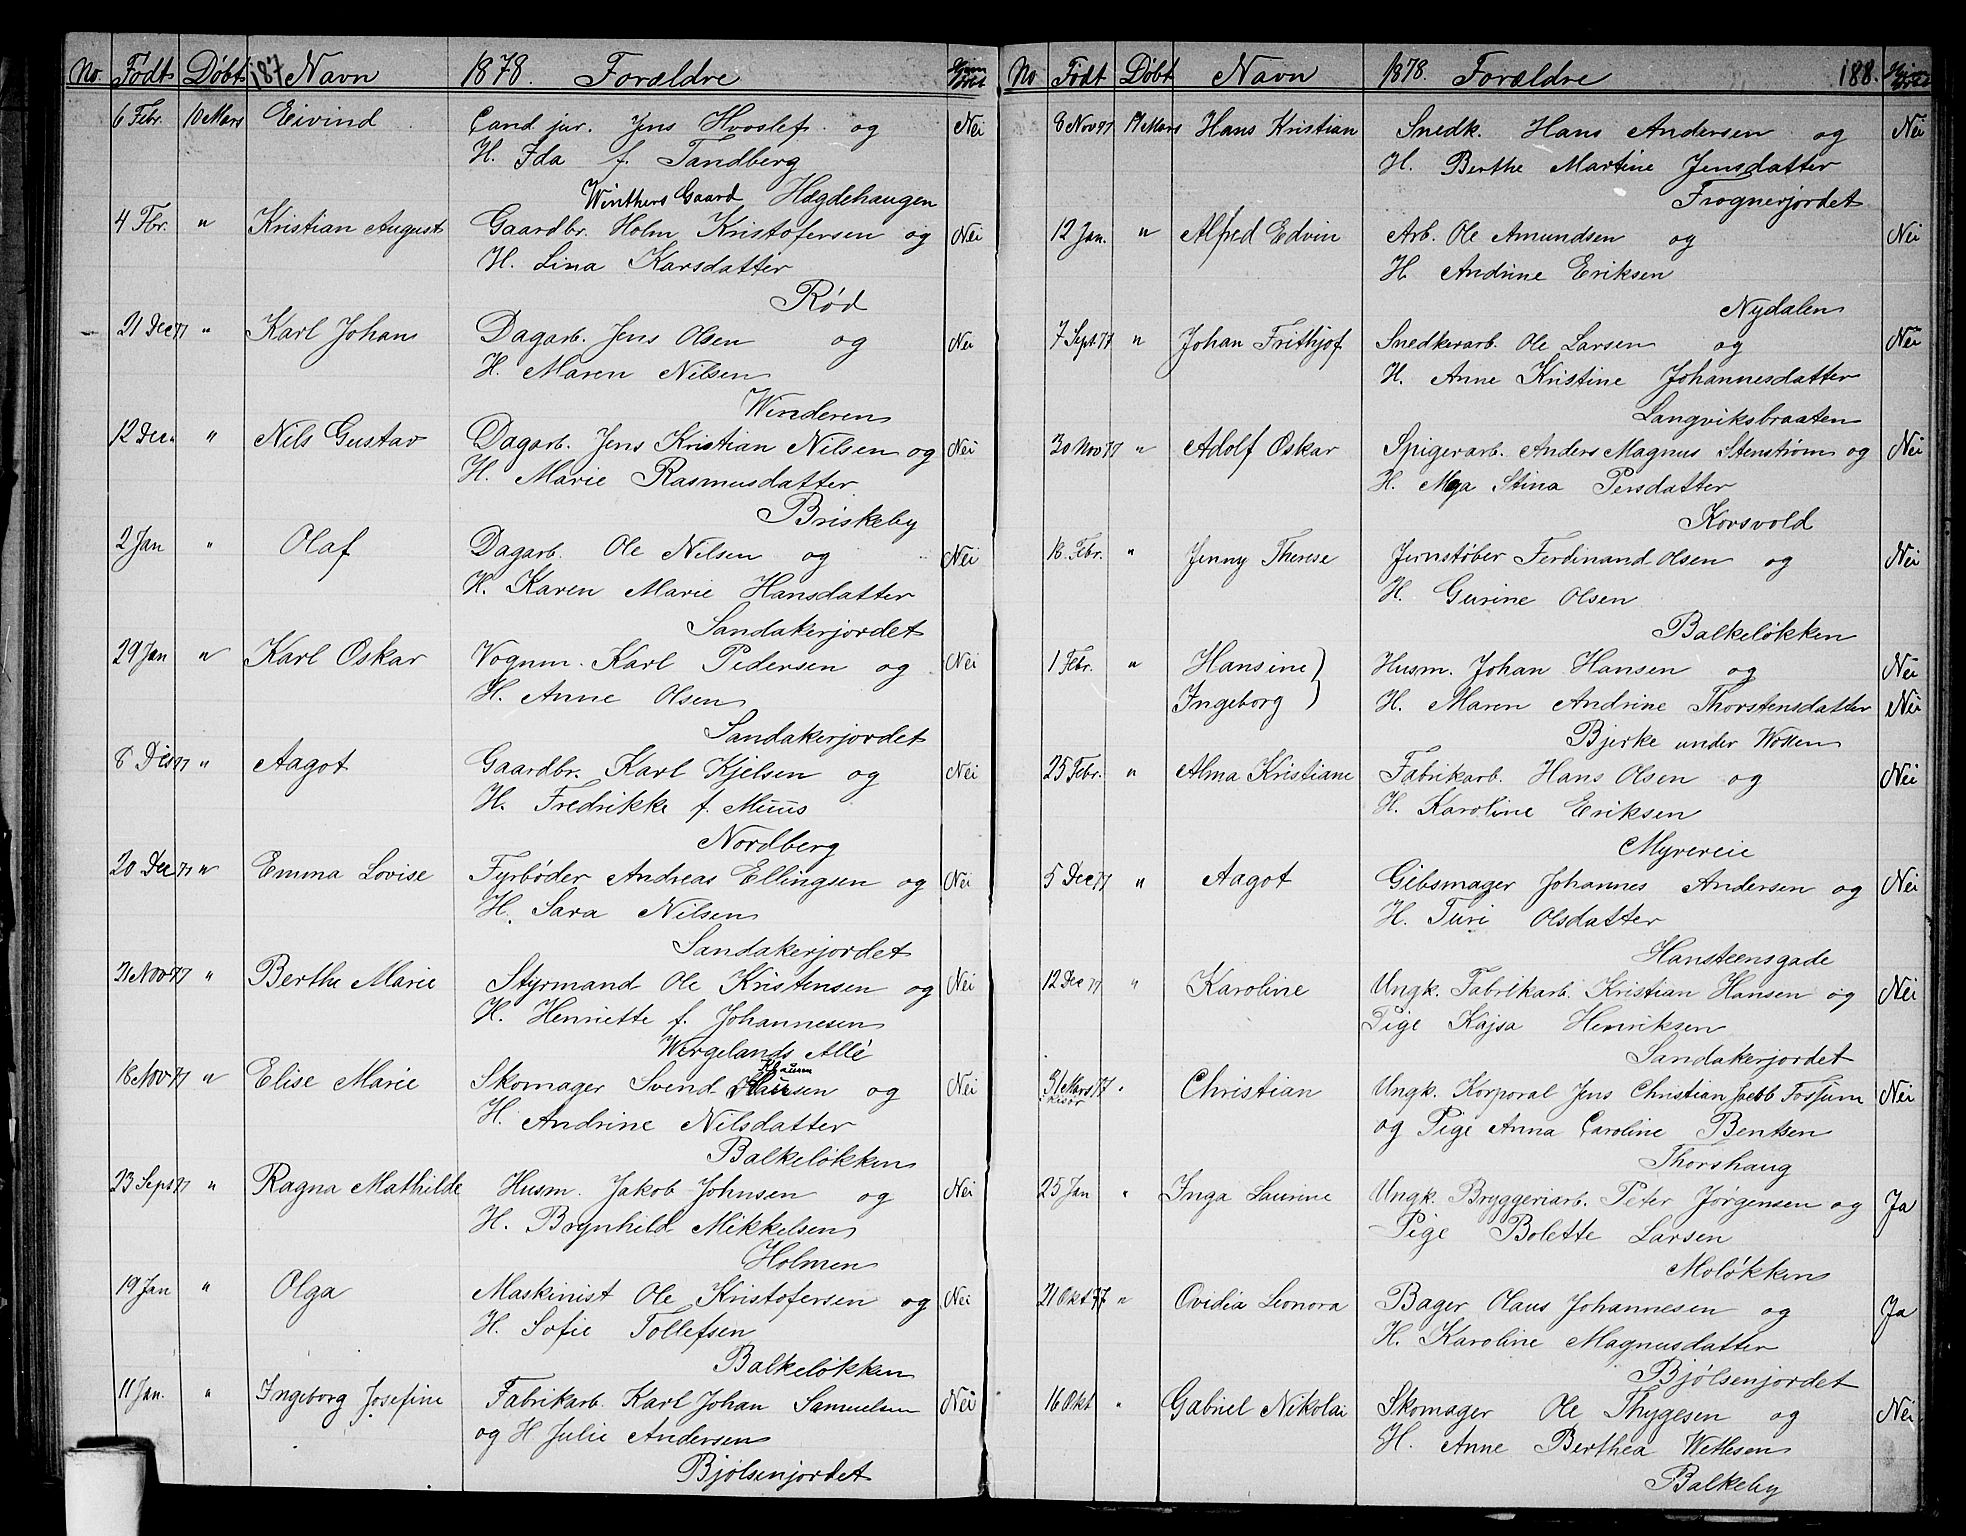 No. Født Døbt 187 Navn 1878. Forældre
6 Febr. 10 Mars Eivind Cand. jur. Jens Hvoslef og Nei
H. Ida f. Tandberg
Winthers Gaard Hægdehaugen
4 Fbr. " Kristian August Gaardbr. Holm Kristofersen og Nei
H. Lina Larsdatter
Rød
21 Dec 77 " Karl Johan Dagarb. Jens Olsen og Nei
H. Maren Nilsen
Winderen
12 Dec " " Nils Gustav Dagarb. Jens Kristian Nilsen og Nei
H. Marie Rasmusdatter
Briskeby
2 Jan " Olaf Dagarb. Ole Nilsen og Nei
H. Karen Marie Hansdatter
Sandakerjordet
29 Jan " Karl Oskar Vognm. Karl Pedersen og Nei
H. Anne Olsen
Sandakerjordet
8 Des 77 " Aagot Gaardbr. Karl Kjelsen og Nei
H. Fredrikke f. Muus
Nordberg
20 Dec 77 " Emma Lovise Fyrbøder Andreas Ellingsen og Nei
H. Sara Nilsen
Sandakerjordet
21 Nov 77 " Berthe Marie Styrmand Ole Kristensen og Nei
H. Henriette f. Johannesen
Wergelands Allé
18 Nov 77 " Elise Marie Skomager Svend og Nei
H. Andrine Nilsdatter
Balkeløkken
23 Sept 77 " Ragna Mathilde Husm. Jakob Johnsen og Nei
H. Brynhild Mikkelsen
Holmen
19 Jan " Olga Maskinist Ole Kristofersen og Nei
H. Sofie Tollefsen
Balkeløkken
11 Jan. " Ingeborg Josefine Fabrikarb. Karl Johan Samuelsen Nei
og H. Julie Andersen
Bjølsenjordet
No Født Døbt Navn 1878. Forældre 188.
8 Nov 77 17 Mars Hans Kristian Snedk. Hans Andersen og Nei
H. Berthe Martine Jensdatter
Frognerjordet
12 Jan. " Alfred Edvin Arb. Ole Amundsen og Nei
H. Andrine Eriksen
Nydalen
7 Sept 77 " Johan Frithjof Snedkerarb. Ole Larsen og Nei
H. Anne Kristine Johannesdatter
Langviksbraaten
30 Nov 77 " Adolf Oskar Spigerarb. Anders Magnus Stenstrøm og Nei
H. Maja Stina Persdatter
Korsvold
18 Febr. " Jenny Therese Jernstøber Ferdinand Olsen og Nei
H. Gurine Olsen
Balkeløkken
1 Febr. " Hansine ) Husm. Johan Hansen og Nei
Ingeborg ) H. Maren Andrine Thorstensdatter Nei
Bjerke under Wollen
25 Febr. " Alma Kristiane Fabrikarb. Hans Olsen og Nei
H. Karoline Eriksen
Myrereie
5 Dec 77 " Aagot Gibsmager Johannes Andersen og Nei
H. Turi Olsdatter
Hansteensgade
12 Dec 77 " Karoline Ungk. Fabrikarb. Kristian Hansen og Nei
Pige Kajsa Henriksen
Sandakerjordet
31 Mars 77 " Christian Ungk. Korporal Jens Christian Jebb Fossum Nei
og Pige Anna Caroline Bentsen
Thorshaug
25 Jan " Inga Laurine Ungk. Bryggeriarb. Peter Jørgensen og Ja
Pige Bolette Larsen
Moløkken
21 Okt 77 " Ovidia Leonora Bager Olaus Johannesen og Ja
H. Karoline Magnusdatter
Bjølsenjordet
16 Okt " Gabriel Nikolai Skomager Ole Thygesen og Nei
H. Anne Berthea Wetlesen
Balkeby